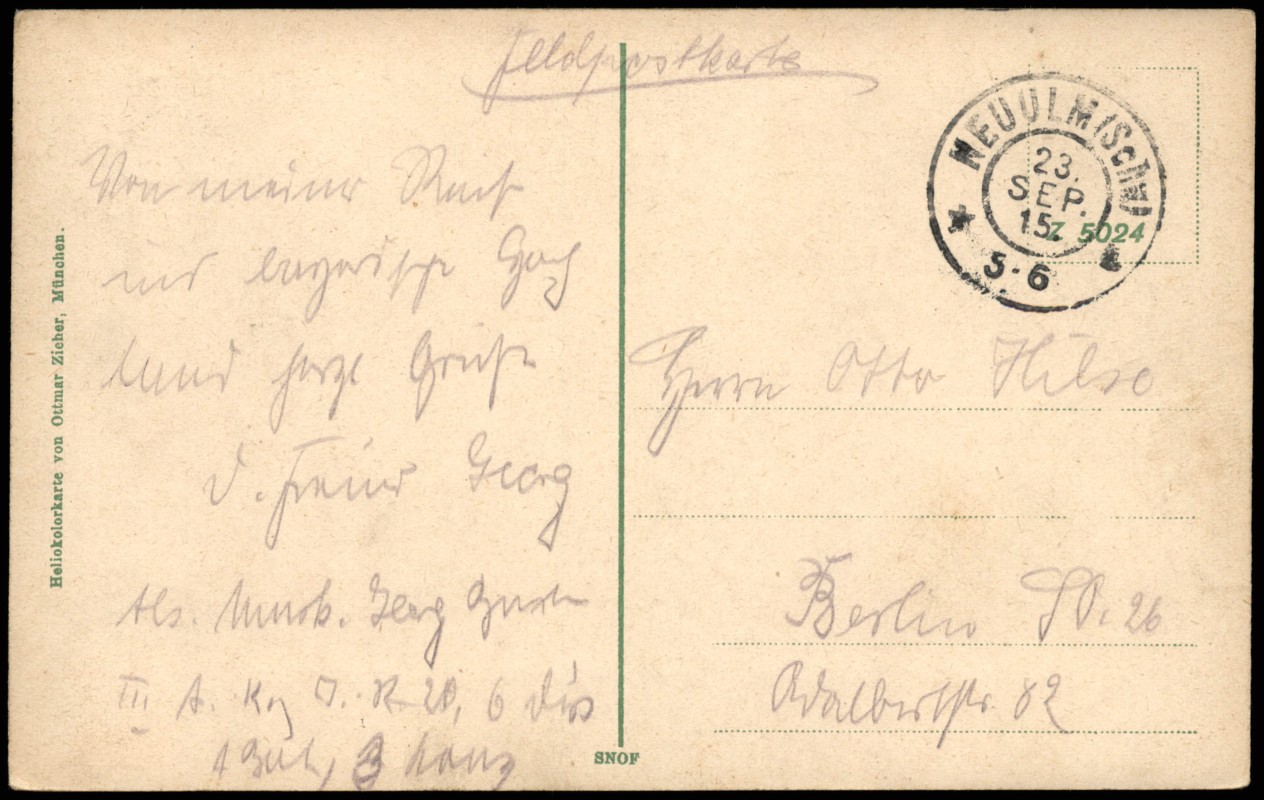 Feldpostkarte
Von meiner Reise
ins bayerische Hoch
land herzl Grüße
d. Freund Georg
Abs. Musk. Georg
III A. K. J. R. 20, 6 Divis
1 Bat, 3 Komp
Heliokolorkarte von Ottmar Zieher, München.
SNOF
NEUULM (SCHW)
23.
SEP.
15.
5-6
Z 5024
Herrn Otto Hilse
Berlin SO. 26
Adalbertstr. 82